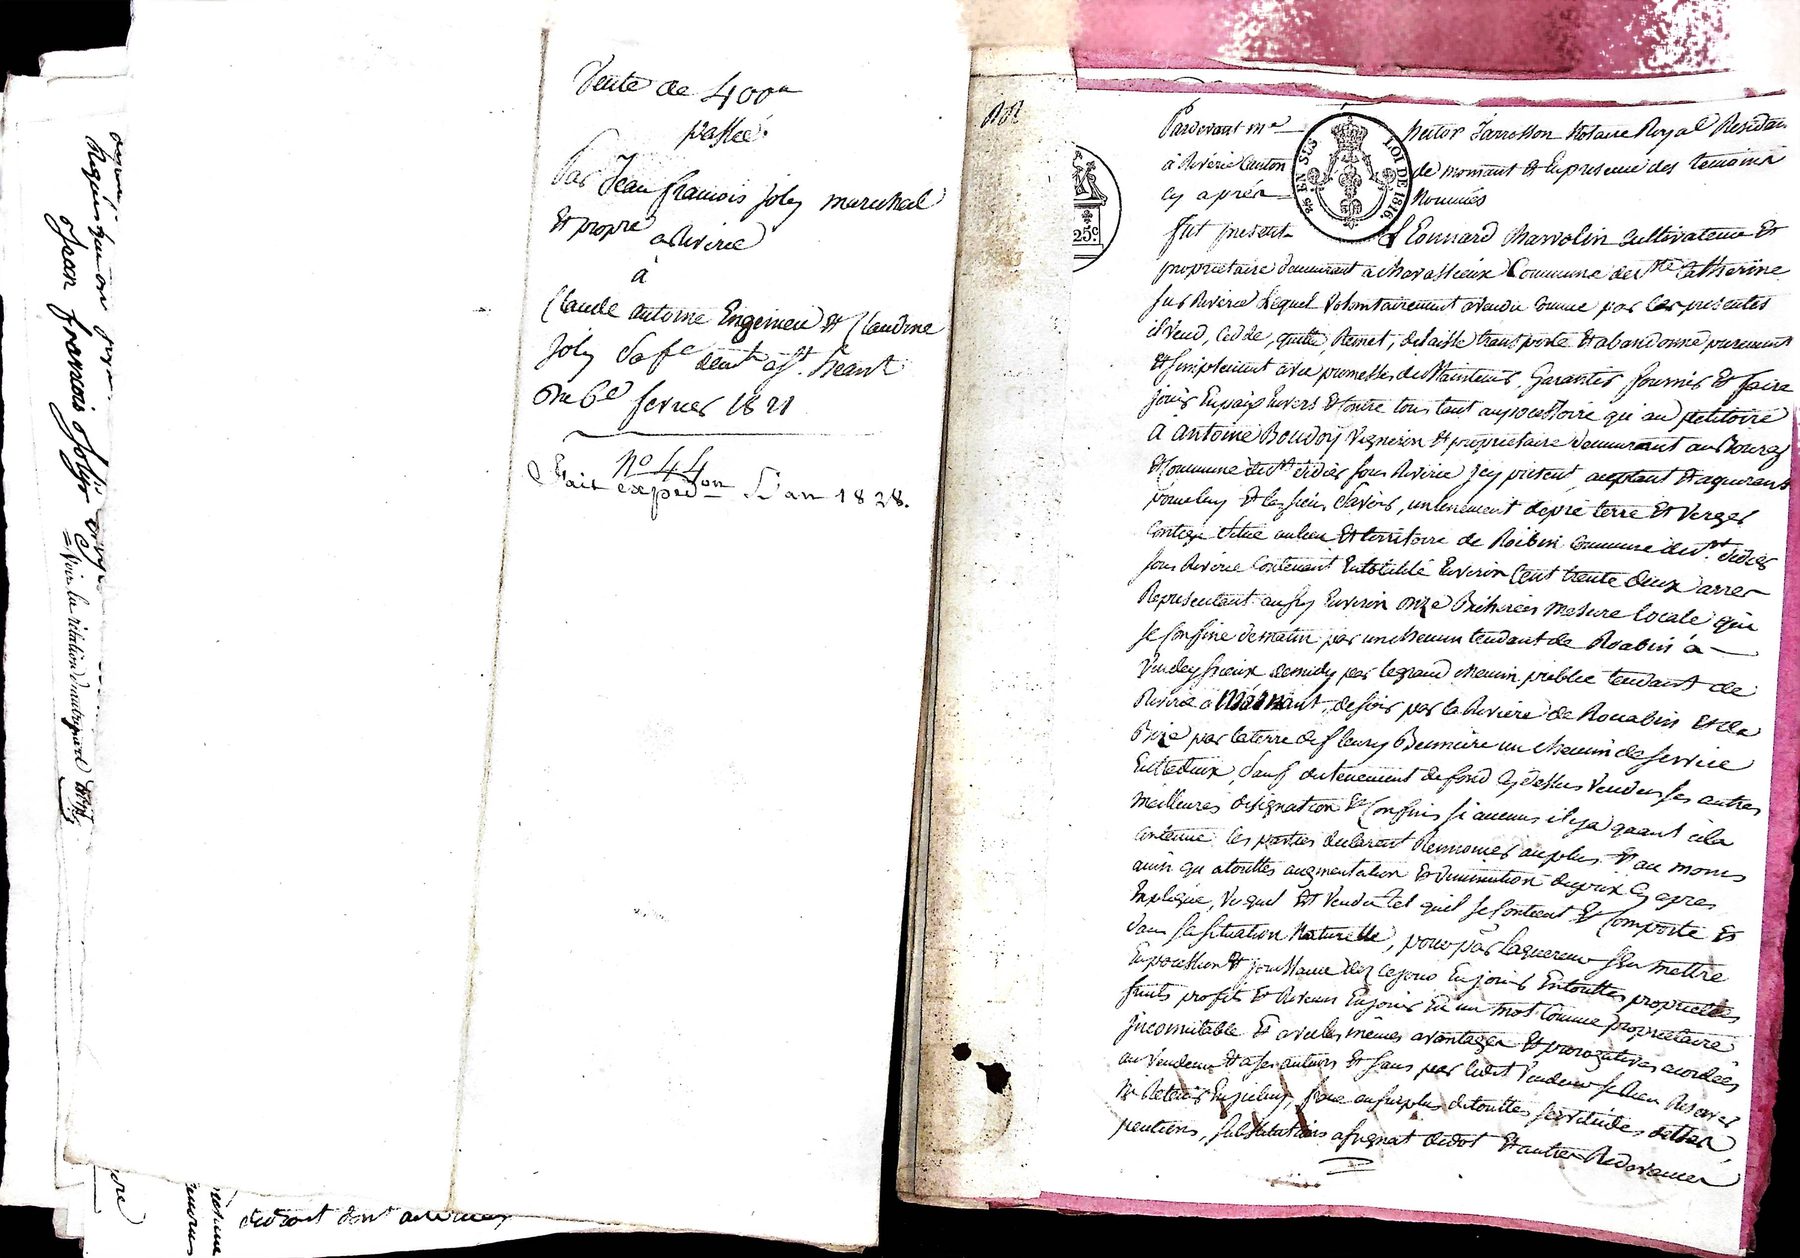 Vente de 400#
passée
Par Jean francois joly marechal
Et propre a Riverie
à
Claude antoine Engeinieu Et Claudine
Joly Sa fe demt a St. heant
Du 6e fevrier 1821
No 44
Fait expedon L'an 1828.
Jean francois Joly
= Voir la rélation d'autre part
dudroit dont
Pardevant me hector Jarrosson Notaire Royal Residan
à Riverie Canton de mornant Et En presence des temoins
cy après Nommés
25 EN SUS LOI DE 1816.
25c
fut present Léonnard Charvolin Cultivateur Et
proprietaire demeurant a chavassieux Commune de Ste Catherine
sur Riverie Lequel volontairement a vendu comme par ces presentes
il vend, cedde, quitte, Remet, delaisse transporte Et abandonne purement
Et simplement avec promesse de Maintenir, Garantir fournir Et faire
jouir En paix Envers Et Contre tous tant au possessoire qu'au petitoire
à antoine Boudoy Vigneron Et proprietaire demeurant au Bourg
Et Commune de St didier sous Riverie jcy present, acceptant Et aquerant
pour luy Et les siens Savoir, un tenement de pré terre Et Verger
Contigu situé au lieu Et territoire de Roibin Commune de St. didier
sous Riverie Contenant En totalité Environ Cent trente deux arres
Representant ancien Environ onze Bicherées mesure locale qui
se Confine de matin par un chemin tendant de Roabin à
de midy par le grand chemin public tendant de
Riverie a Mornant, de soir par la Riviere de Rouabin Et de
Bize par la terre de fleury un chemin de service
Entredeux, Sauf du tenement de fond cy dessus Vendu ses autres
meilleures designation Et Confins si aucuns il y a quant à la
contenue les parties declarent Renoncer au plus Et au moins
ainsi qu'a touttes augmentation Et diminution de prix cy apres
Expliqué, Lequel Est Vendu tel quil se Contient Et Comporte Et
dans sa situation Naturelle, pour par Laquereur s'En mettre
En possession Et jouissance dez ce jour En jouir En touttes proprietés
fruits profits Et Revenus En jouir En un mot Comme proprietaire
jncomutable Et avec les mêmes avantages Et prerogatives accordées
au Vendeur Et a ses auteurs Et sans par ledit Vendeur se Rien Reserver
Ny Retenir franc au surplus de touttes servitudes dettes
pentions, substitutions Et autres Redevances